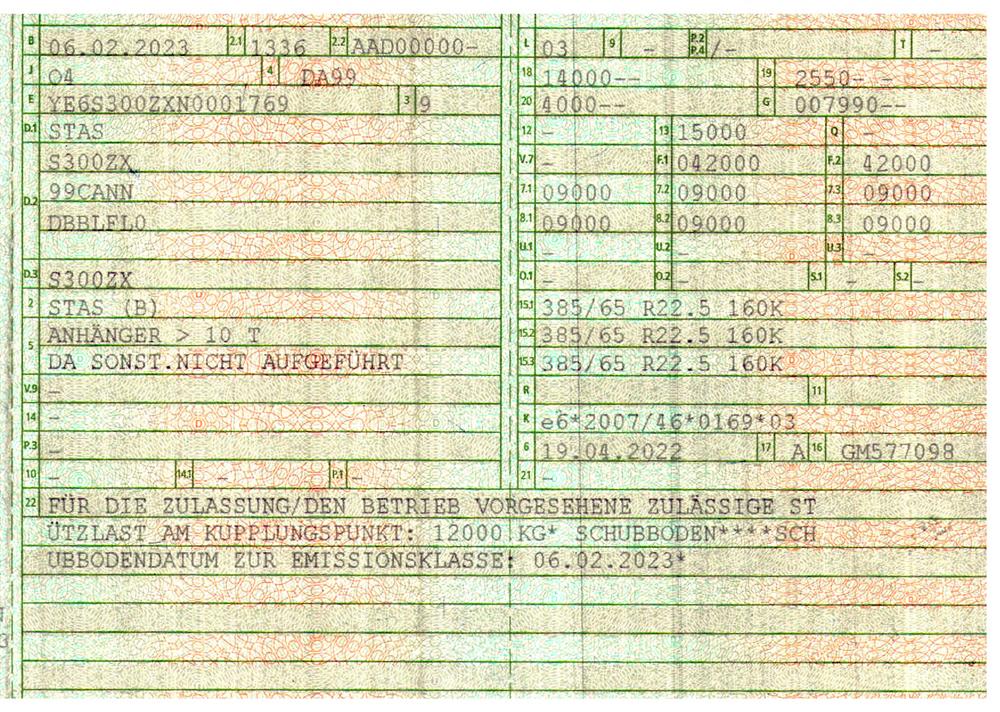 B 06.02.2023 2.1 1336 2.2 AAD00000-
J O4 4 DA99
E YE6S300ZXN0001769 3 9
D.1 STAS
S300ZX
D.2 99CANN
DBBLFL0
D.3 S300ZX
2 STAS (B)
5 ANHÄNGER > 10 T
DA SONST.NICHT AUFGEFÜHRT
V.9 -
14 -
P.3 -
10 - 14.1 - P.1 -
L 03 9 - P.2 P.4 /- T -
18 14000-- 19 2550- -
20 4000-- G 007990--
12 - 13 15000 Q -
V.7 - F.1 042000 F.2 42000
7.1 09000 7.2 09000 7.3 09000
8.1 09000 8.2 09000 8.3 09000
U.1 - U.2 - U.3 -
O.1 - O.2 - S.1 - S.2 -
15.1 385/65 R22.5 160K
15.2 385/65 R22.5 160K
15.3 385/65 R22.5 160K
R 11
K e6*2007/46*0169*03
6 19.04.2022 17 A 16 GM577098
21 -
22 FÜR DIE ZULASSUNG/DEN BETRIEB VORGESEHENE ZULÄSSIGE ST
ÜTZLAST AM KUPPLUNGSPUNKT: 12000 KG* SCHUBBODEN****SCH
UBBODENDATUM ZUR EMISSIONSKLASSE: 06.02.2023*